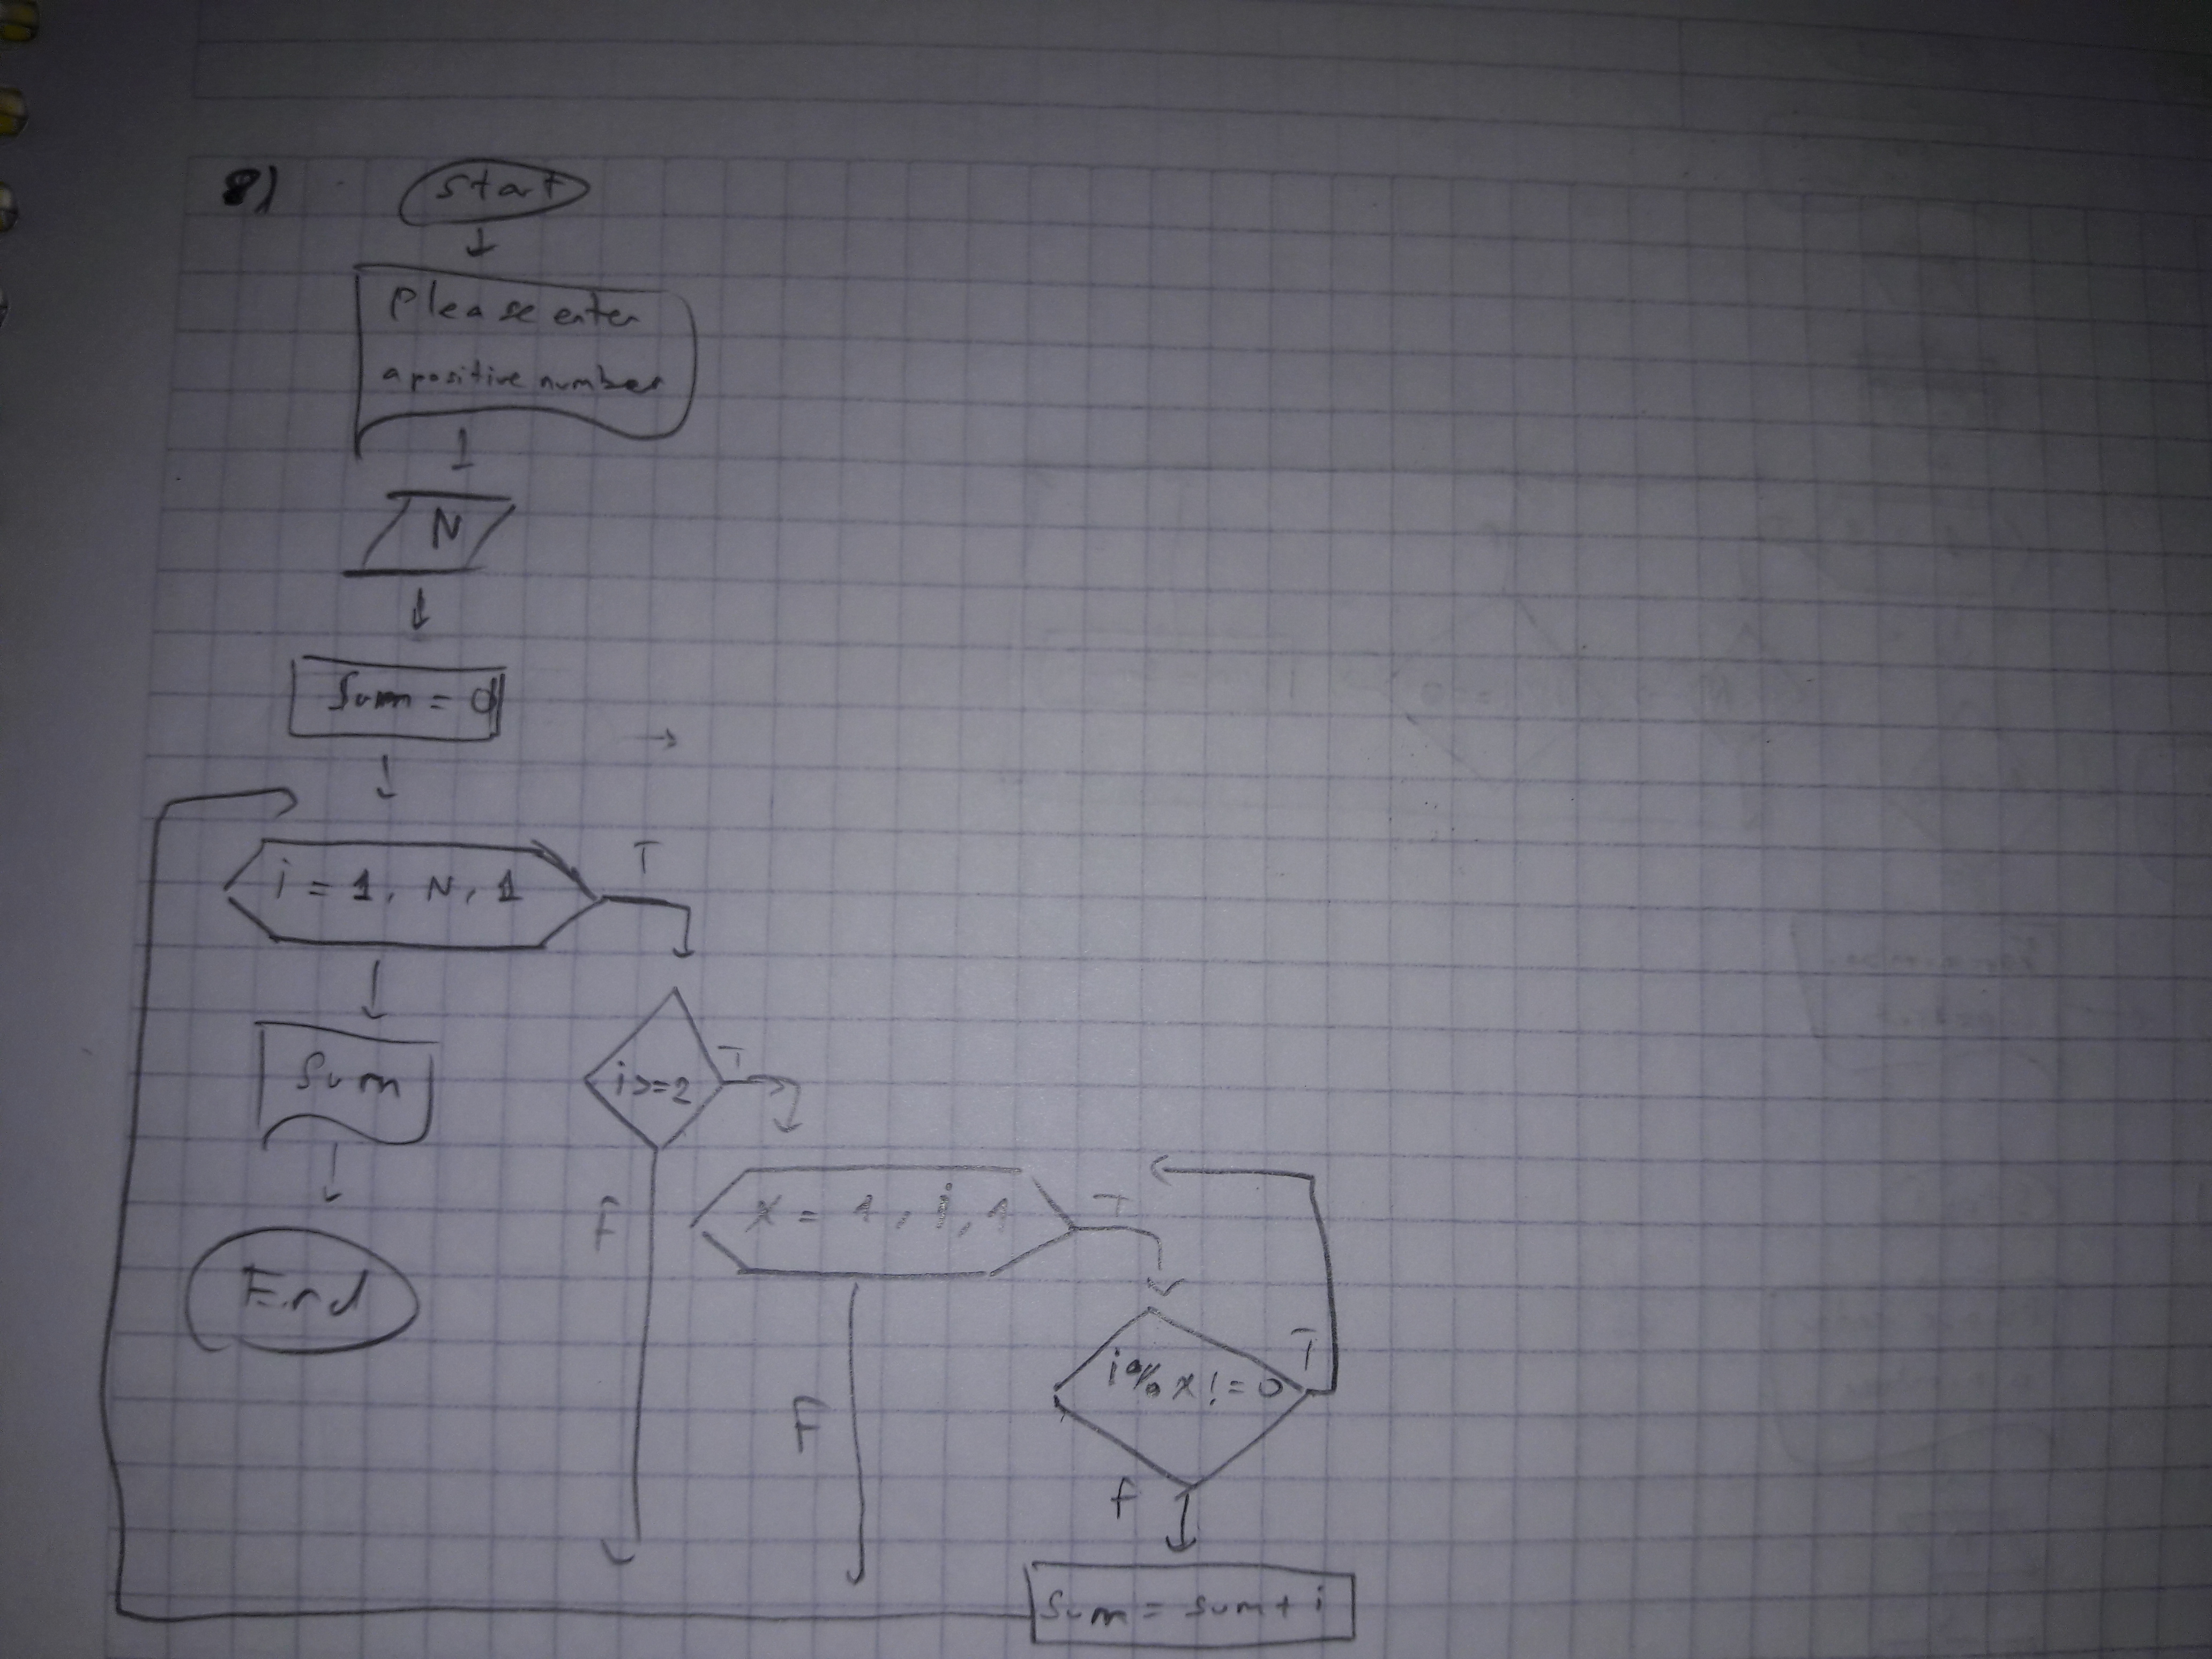 8)
Start
Please enter
a positive number
N
Sum = 0
i = 1, N, 1
T
i>=2
T
f
x = 1, i, 1
T
F
i%x!=0
T
f
Sum = sum+i
Sum
End